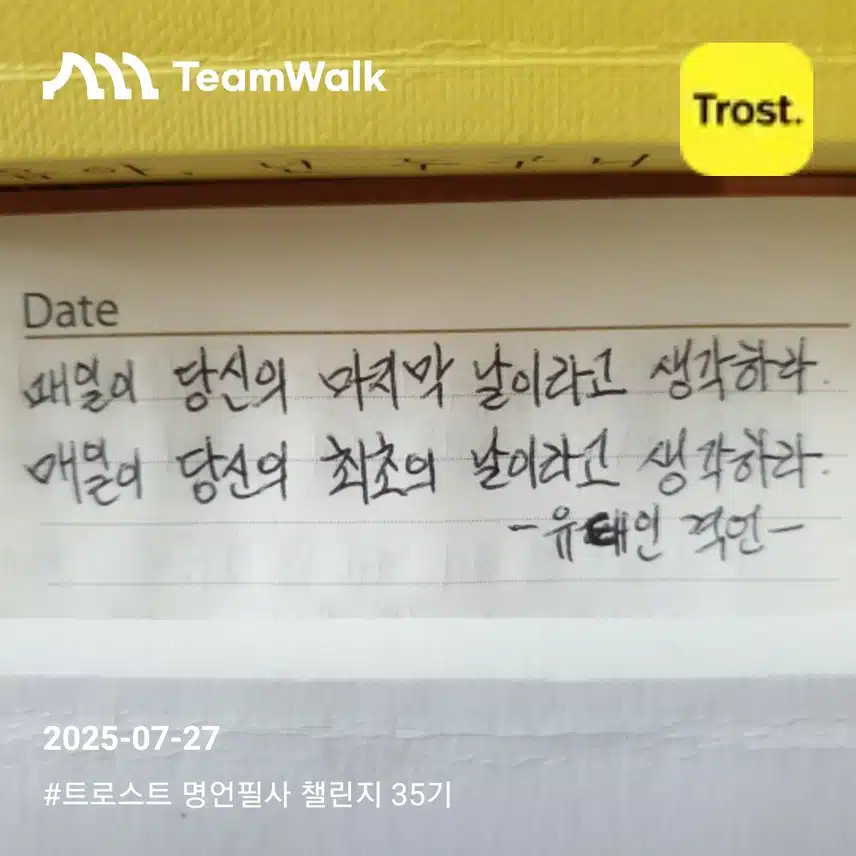 TeamWalk
Trost.
Date
매일이 당신의 마지막 날이라고 생각하라.
매일이 당신의 최초의 날이라고 생각하라.
-유태인 격언-
2025-07-27
#트로스트 명언필사 챌린지 35기